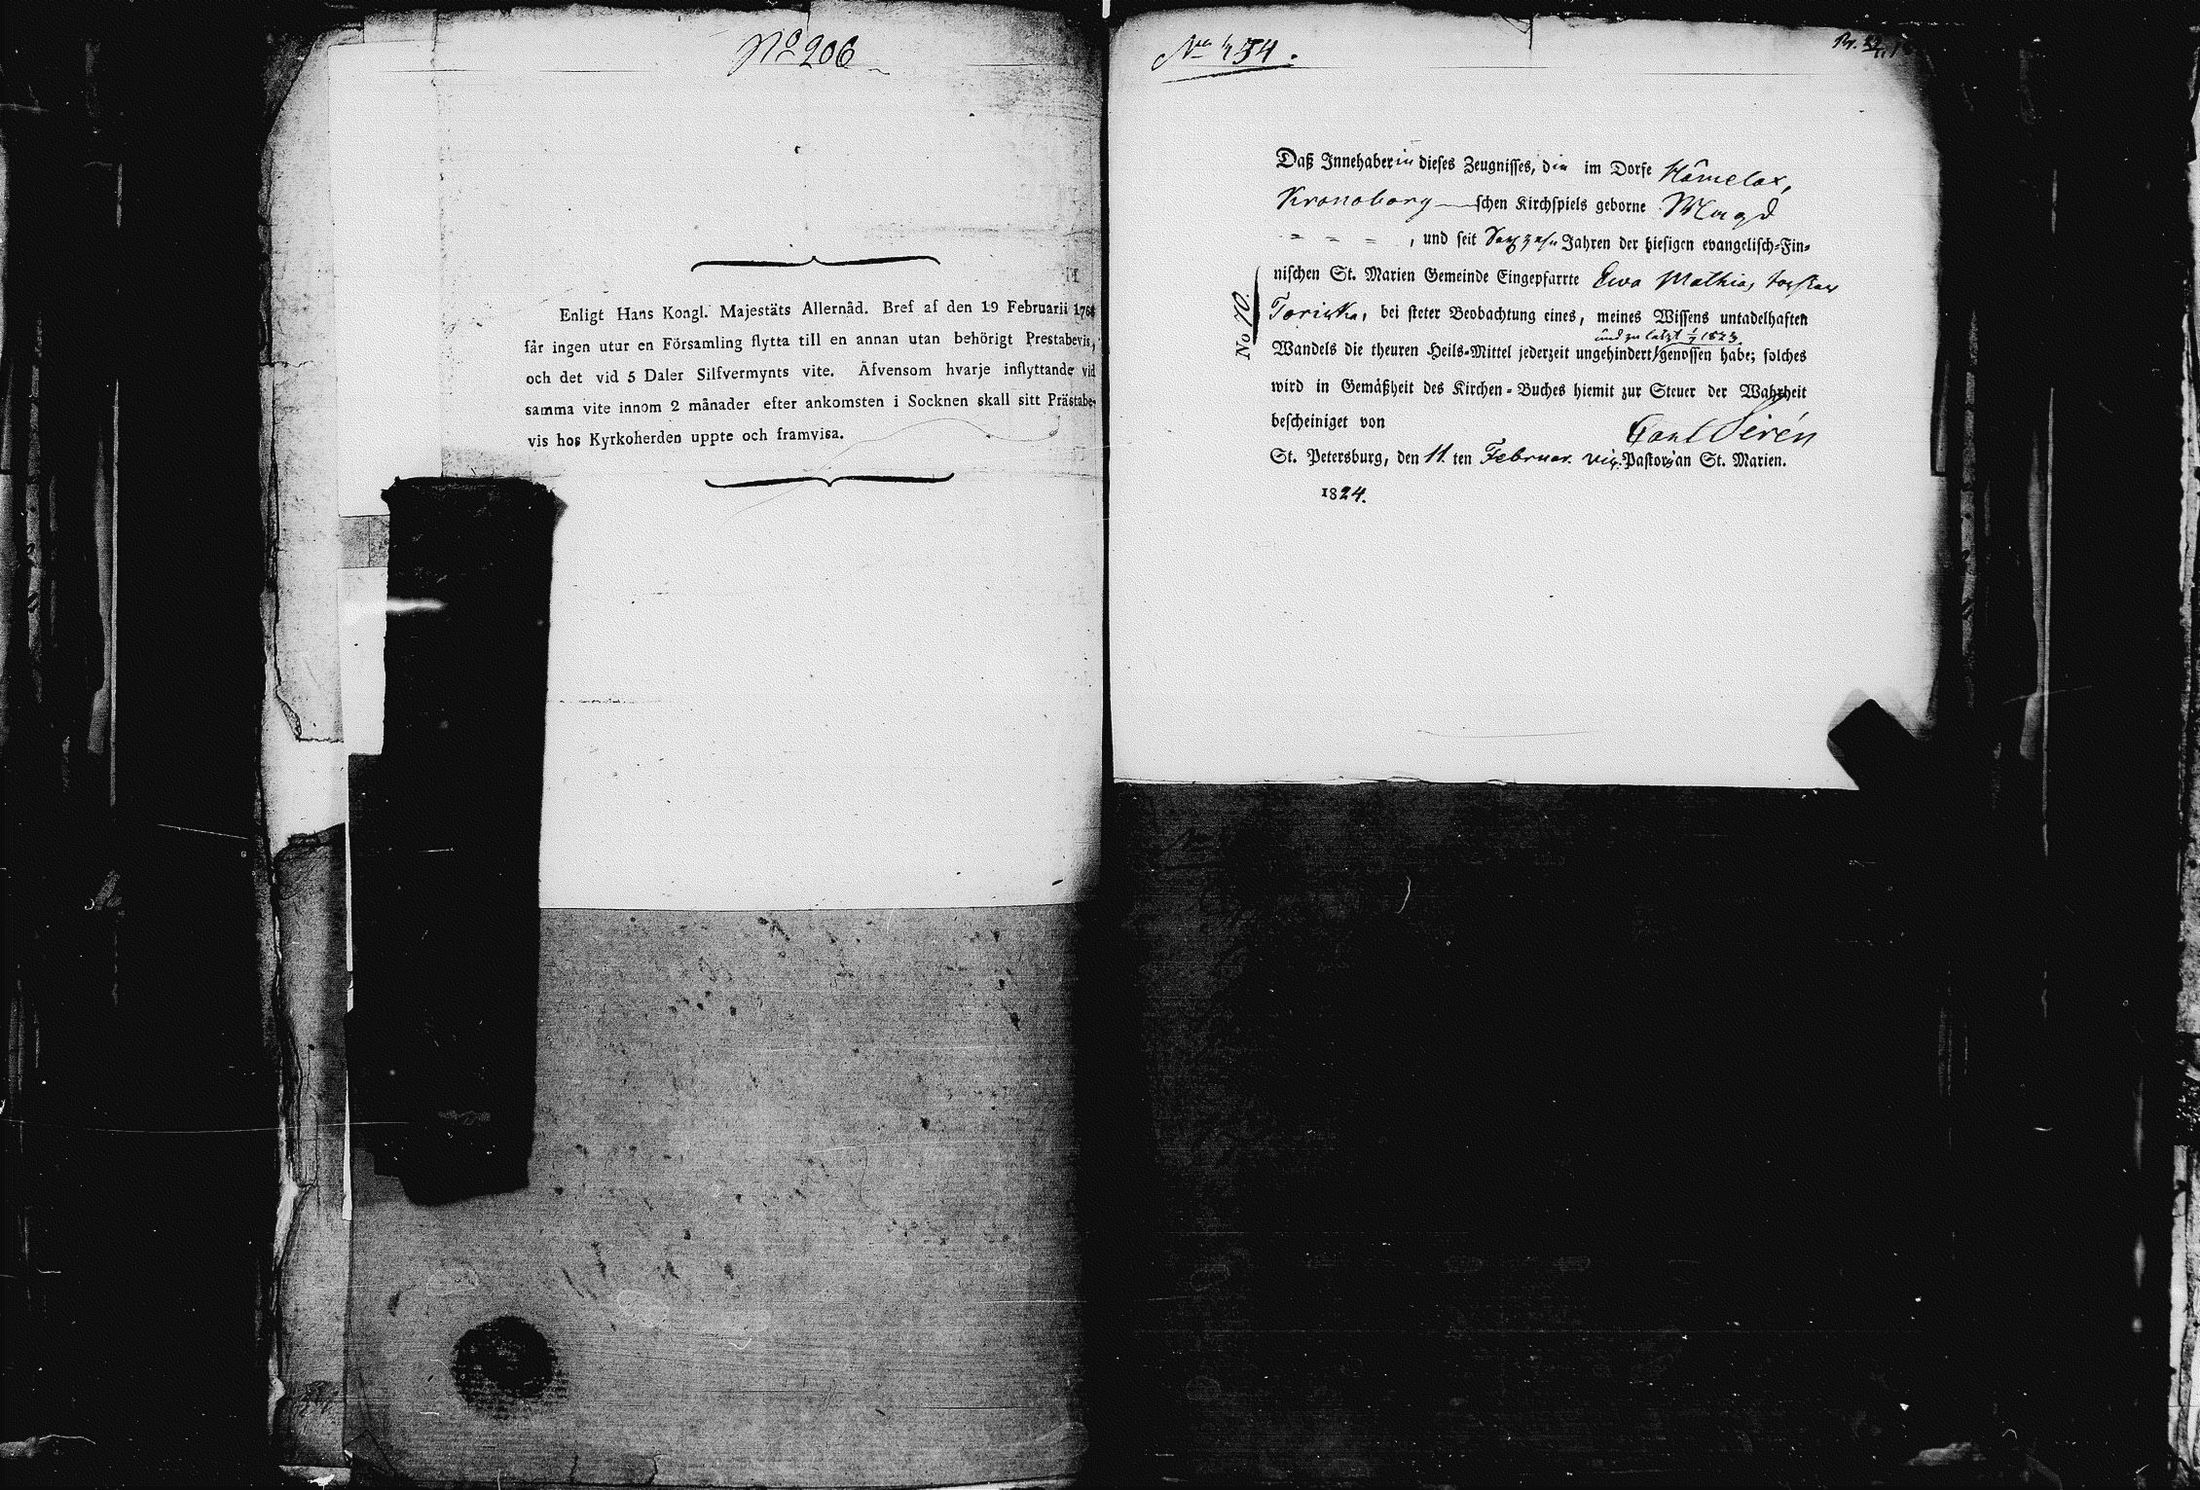 No 206
Enligt Hans Kongl. Majestäts Allernåd. Bref af den 19 Februarii
får ingen utur en Församling flytta till en annan utan behörigt Prestabevis,
och det vid 5 Daler Silfvermynts vite. Äfvensom hvarje inflyttande vid
samma vite innom 2 månader efter ankomsten i Socknen skall sitt Prästabe-
vis hos Kyrkoherden uppte och framvisa.
Daß Innehaberin dieses Zeugnisses, die im Dorfe
Kronoborg schen Kirchspiels geborne Magd
, und seit Jahren der hiesigen evangelisch-Fin-
nischen St. Marien Gemeinde Eingepfarrte Ewa Mathias
No 70.
bei steter Beobachtung eines, meines Wissens untadelhaften
und zu letzt 1823.
Wandels die theuren Heils-Mittel jederzeit ungehindert genossen habe; solches
wird in Gemäßheit des Kirchen-Buches hiemit zur Steuer der Wahrheit
bescheiniget von Carl Sirén
St. Petersburg, den 11 ten Februar. vic. Pastor an St. Marien.
1824.